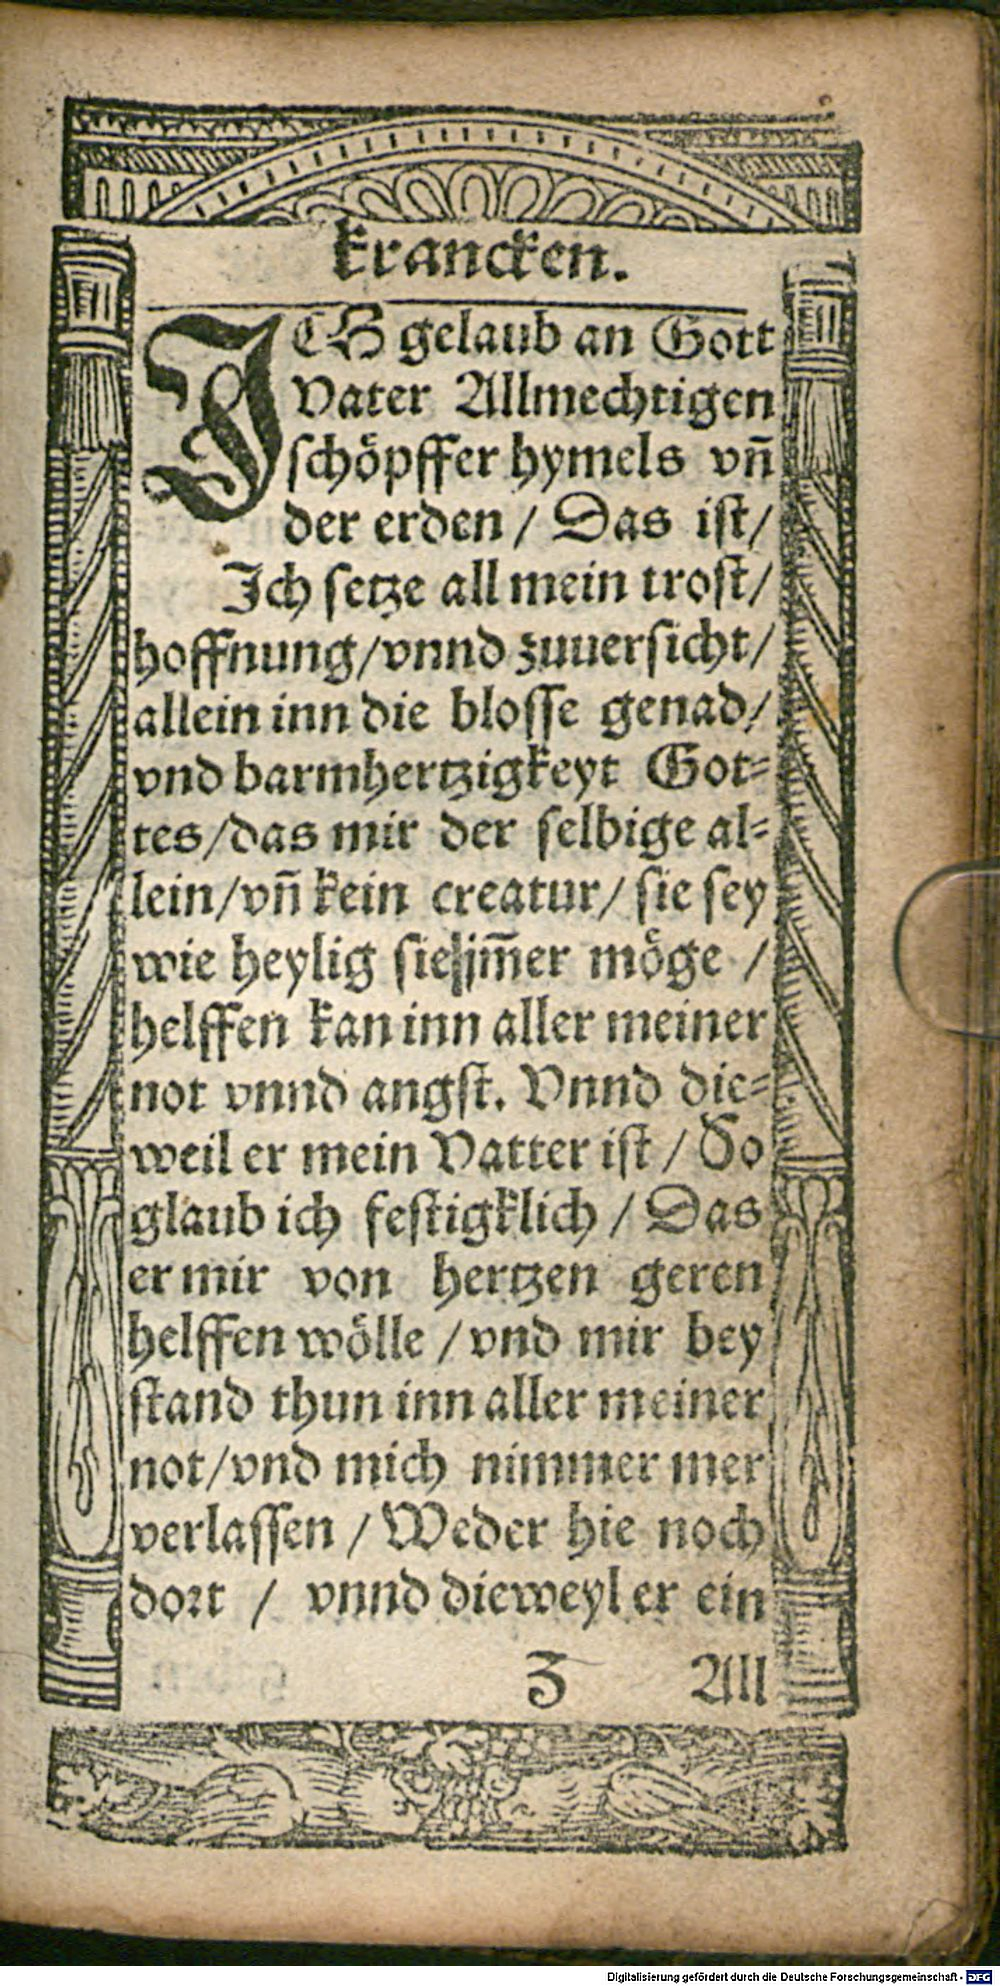 krancken.
ICH gelaub an Gott
Vater Allmechtigen
schöpffer hymels vn̄
der erden / Das ist /
Ich setze all mein trost /
hoffnung / vnnd zuuersicht /
allein inn die blosse genad /
vnd barmhertzigkeyt Got⸗
tes / das mir der selbige al⸗
lein / vn̄ kein creatur / sie sey
wie heylig sie jm̄er möge /
helffen kan inn aller meiner
not vnnd angst. Vnnd die⸗
weil er mein Vatter ist / So
glaub ich festigklich / Das
er mir von hertzen geren
helffen wölle / vnd mir bey
stand thun inn aller meiner
not / vnd mich nimmer mer
verlassen / Weder hie noch
dort / vnnd dieweyl er ein
Z All
Digitalisierung gefördert durch die Deutsche Forschungsgemeinschaft - DFG